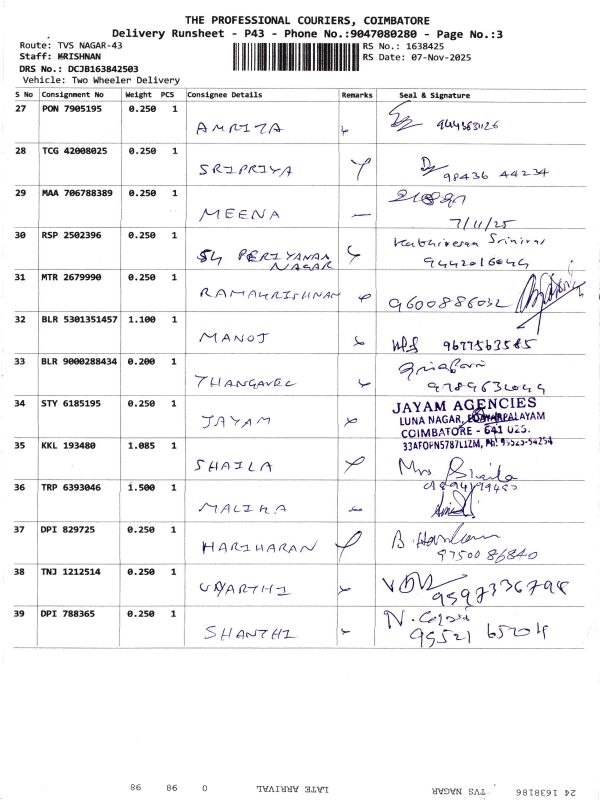 THE PROFESSIONAL COURIERS, COIMBATORE
Delivery Runsheet - P43 - Phone No.:9047080280 - Page No.:3
Route: TVS NAGAR-43
RS No.: 1638425
Staff: KRISHNAN
RS Date: 07-Nov-2025
DRS No.: DCJB163842503
Vehicle: Two Wheeler Delivery
S No Consignment No Weight PCS Consignee Details Remarks Seal & Signature
27 PON 7905195 0.250 1
AMRITA
28 TCG 42008025 0.250 1
SRIPRIYA 98436 44234
29 MAA 706788389 0.250 1
MEENA —
7/11/25
30 RSP 2502396 0.250 1
54 PERIYANAN
NAGAR 9442016044
31 MTR 2679990 0.250 1
RAMAKRISHNAN 9600886032
32 BLR 5301351457 1.100 1
MANOJ 9677563585
33 BLR 9000288434 0.200 1
THANGAVEL 9789632049
34 STY 6185195 0.250 1
JAYAM
JAYAM AGENCIES
LUNA NAGAR,
COIMBATORE - 641 025.
35 KKL 193480 1.085 1
SHAILA Mrs Shaila
36 TRP 6393046 1.500 1
MALIKA
37 DPI 829725 0.250 1
HARIHARAN 9750086840
38 TNJ 1212514 0.250 1
9597336798
39 DPI 788365 0.250 1
SHANTHI
24 1638186 TVS NAGAR LATE ARRIVAL 0 98 98